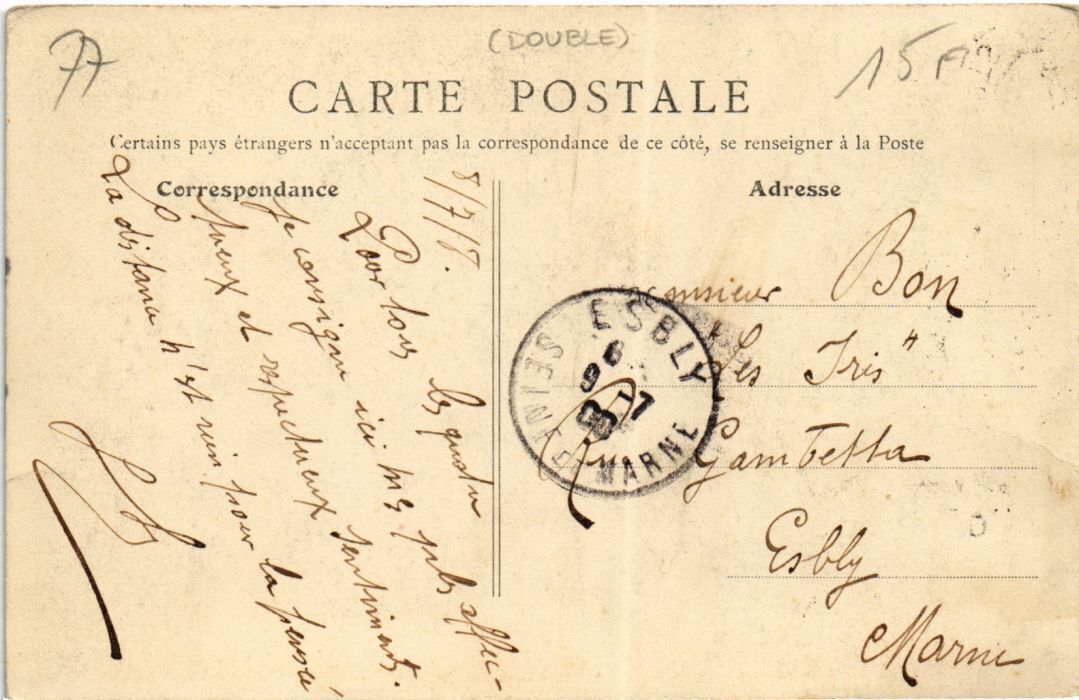 77
(DOUBLE)
15 F
CARTE POSTALE
Certains pays étrangers n'acceptant pas la correspondance de ce côté, se renseigner à la Poste
Correspondance
8/7/8.
Pour tous les quatre
Je consigne ici mes plus affec-
tueux et respectueux sentiments.
La distance n'est rien pour la pensée
Adresse
Monsieur Bon
"Les Iris"
Rue Gambetta
Esbly
Marne
ESBLY
SEINE-ET-MARNE